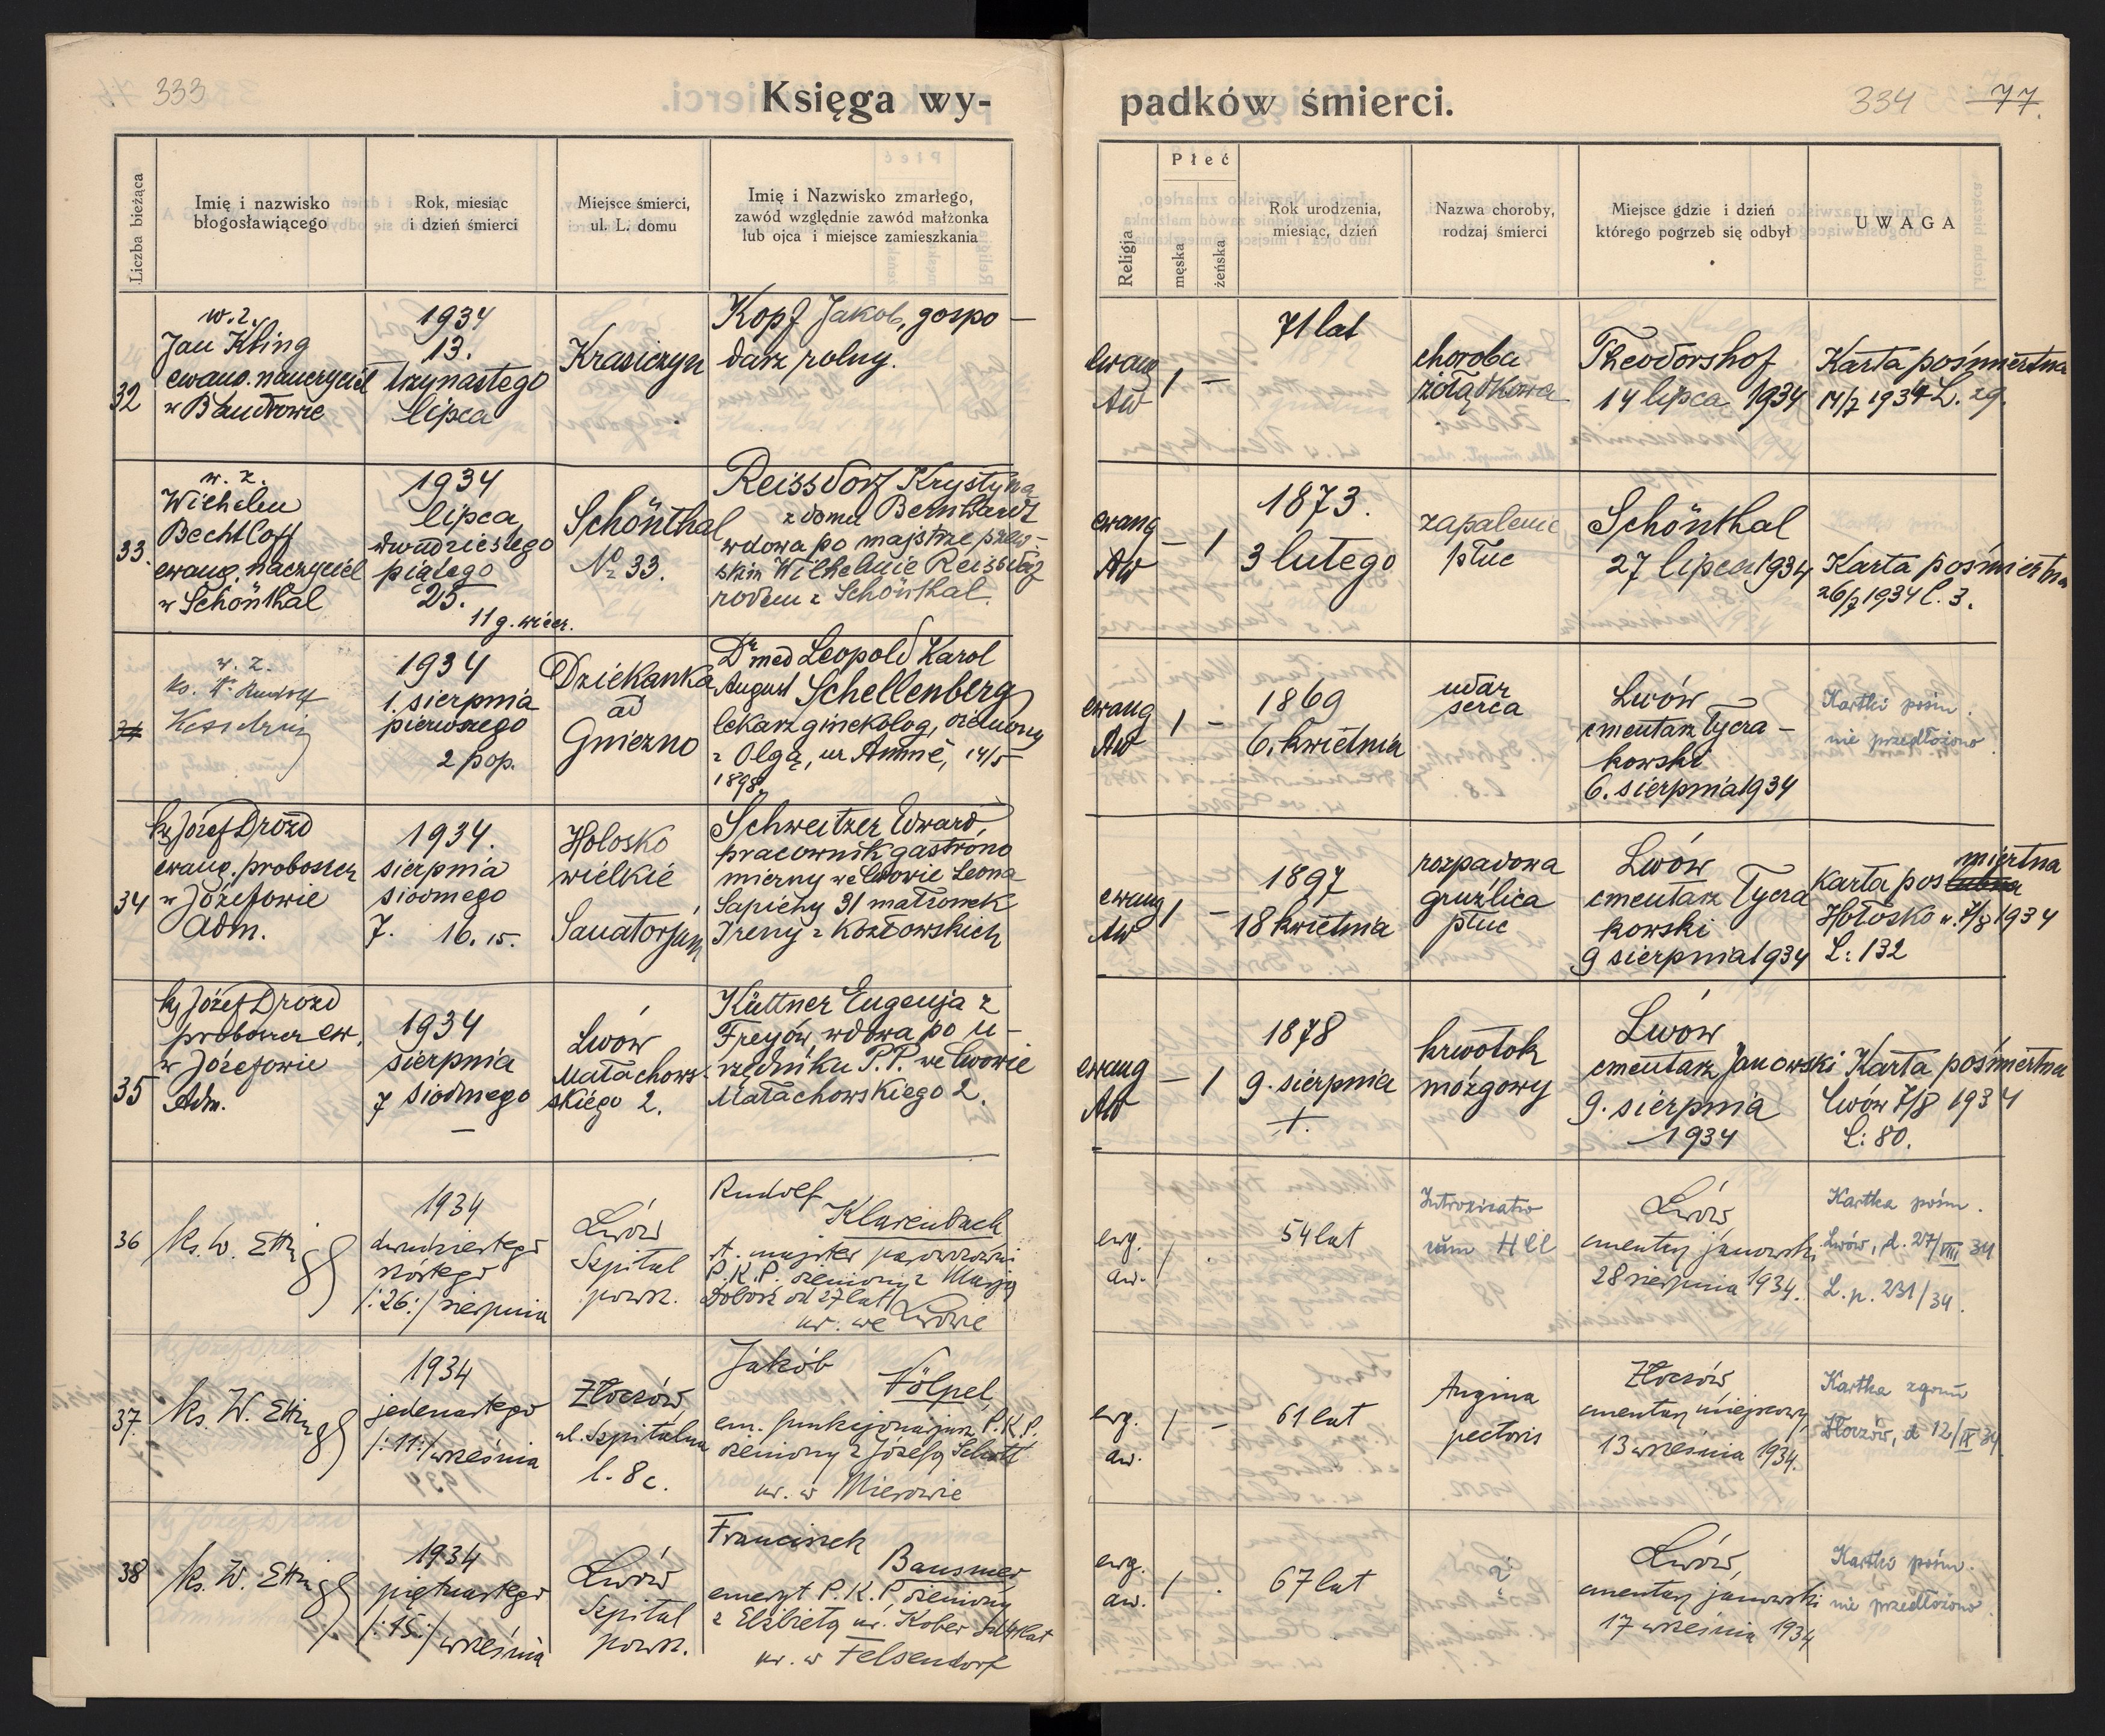 333
Księga wy-
padków śmierci.
334
77.
Liczba bieżąca
Imię i nazwisko
błogosławiącego
Rok, miesiąc
i dzień śmierci
Miejsce śmierci,
ul. L. domu
Imię i Nazwisko zmarłego,
zawód względnie zawód małżonka
lub ojca i miejsce zamieszkania
Religja
Płeć
męska
żeńska
Rok urodzenia,
miesiąc, dzień
Nazwa choroby,
rodzaj śmierci
Miejsce gdzie i dzień
którego pogrzeb się odbył
UWAGA
32
w. z.
Jan Kling
ewang. nauczyciel
w Bandrowie
1934
13.
trzynastego
lipca
Krasiczyn
Kopf Jakob, gospo-
darz rolny.
ewang
AW
1 –
71 lat
choroba
żołądkowa
Theodorshof
14 lipca 1934
Karta pośmiertna
14/7 1934 L. 29.
33.
w. z.
Wilhelm
Bechtloff
ewang. nauczyciel
w Schönthal
1934
lipca
dwudziestego
piątego
25.
11 g. wiecz.
Schönthal
№ 33.
Reissdorf Krystyna
z domu Bernhardt
wdowa po majstrze szew-
skim Wilhelmie Reissdorf
rodem z Schönthal.
ewang
AW
– 1
1873.
3 lutego
zapalenie
płuc
Schönthal
27 lipca 1934
Karta pośmiertna
26/7 1934 l. 3.
w. z.
ks. Dr. Rudolf
Kesselring
1934
1. sierpnia
pierwszego
2 pop.
Dziekanka
ad
Gniezno
Dr med Leopold Karol
August Schellenberg
lekarz ginekolog, ożeniony
z Olgą, ur Amme, 14/5
1898.
ewang
AW
1 –
1869
6. kwietnia
udar
serca
Lwów –
cmentarz Łycza-
kowski
6. sierpnia 1934
Kartki pośm.
nie przedłożono.
34
ks Józef Drozd
ewang. proboszcz
w Józefowie
Adm.
1934.
sierpnia
siódmego
7. 16.15.
Hołosko
wielkie
Sanatorjum
Schweitzer Edward,
pracownik gastrono
mierny we Lwowie Leona
Sapiehy 31 małżonek
Ireny z Kozłowskich
ewang
AW
1 –
1897
18 kwietnia
rozpadowa
gruźlica
płuc
Lwów
cmentarz Łycza
kowski
9 sierpnia 1934
Karta pośmiertna
Hołosko w. 7/8 1934
L: 132
35
ks Józef Drozd
proboszcz ew.
w Józefowie
Adm.
1934
sierpnia
7 siódmego
–
Lwów
Małachow-
skiego 2.
Küttner Eugenja z
Freyów, wdowa po u-
rzędniku P.P. we Lwowie
Małachowskiego 2.
ewang
AW
– 1
1878
9. sierpnia
+.
krwotok
mózgowy
Lwów
cmentarz Janowski
9. sierpnia
1934
Karta pośmiertna
Lwów 7/8 1934
L: 80.
36
ks. W. Ettinger
1934
dwudziestego
szóstego
/:26:/ sierpnia
Lwów
Szpital
powsz.
Rudolf
Klarenbach
st. majster parowozowni
P.K.P. ożeniony z Marją
od 27 lat/
ur. we Lwowie
ewg.
aw.
1 .
54 lat
Lwów
cmentarz janowski
28 sierpnia 1934.
Kartka pośm.
Lwów, d. 27/VIII 34
L. p. 231/34.
37.
ks. W. Ettinger
1934
jedenastego
/:11:/ września
Złoczów
ul. Szpitalna
l. 8c.
Jakób
Völpel,
em. funkcjonarjusz P.K.P.
ożeniony z Józefą Schott
ur. w Mierowie
ewg.
aw.
1 –
61 lat
Angina
pectoris
Złoczów
cmentarz miejscowy
13 września 1934.
Kartka zgonu
Złoczów, d 12/IX 34.
38
ks. W. Ettinger
1934
piętnastego
/:15:/ września
Lwów
Szpital
powsz.
Franciszek
Bausmer
emeryt P.K.P., ożeniony
z Elżbietą ur. Kober od 41 lat
ur. w Felsendorf
ewg.
aw.
1 .
67 lat
?
Lwów,
cmentarz janowski
17 września 1934
Kartki pośm.
nie przedłożono.